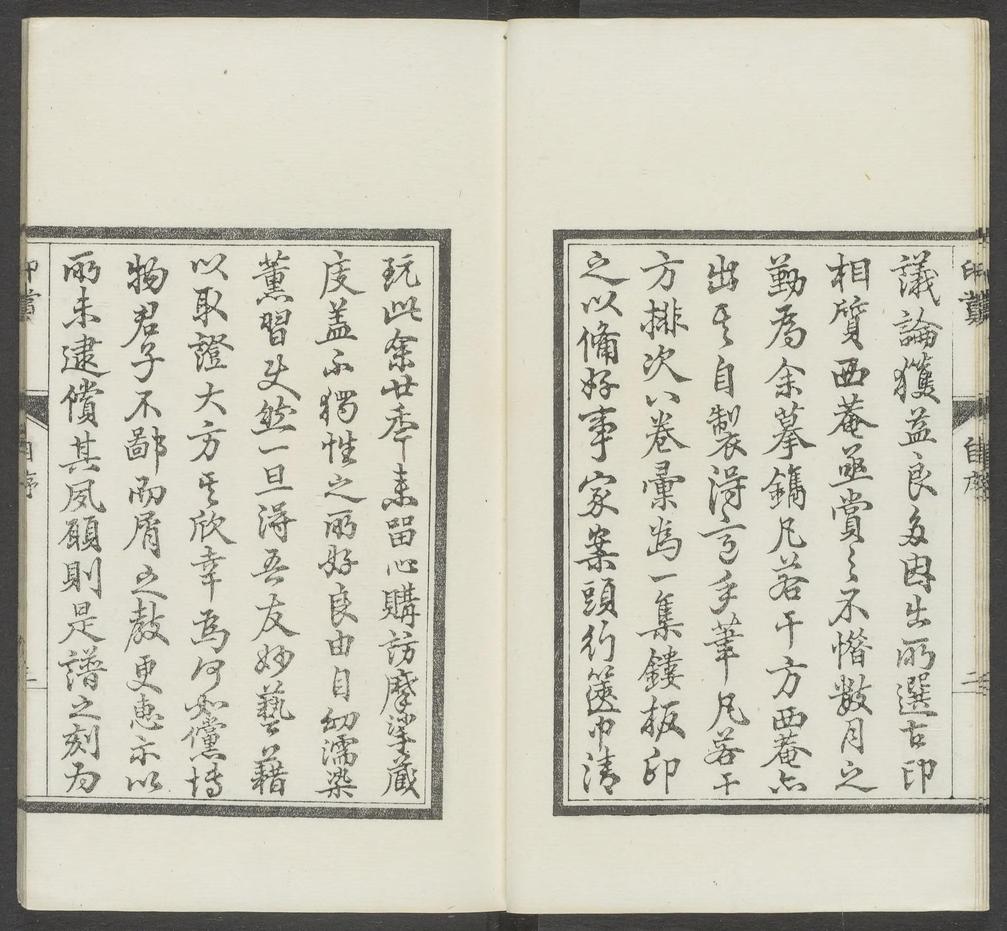 自序
二
議論獲益良多因出所選古印
相質西菴亟賞之不惜數月之
勤為余摹鐫凡若干方西菴亦
出其自製得意手筆凡若干
方排次八卷彙為一集鏤板印
之以備好事家案頭行篋中清
玩此余廿秊来留心購訪摩挲藏
庋蓋不獨性之所好良由自幼濡染
薰習使然一旦得吾友妙藝藉
以取證大方其欣幸為何如儻博
物君子不鄙而屑之教更惠示以
所未逮償其夙願則是譜之刻為
自序